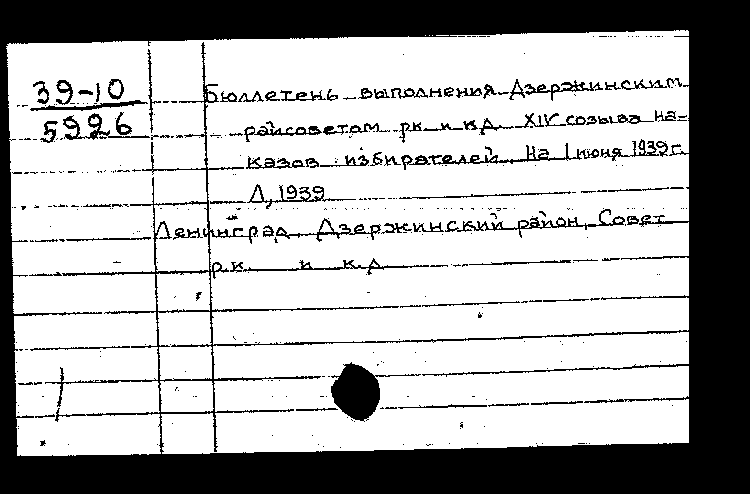 39-10
5926
Бюллетень выполнения Дзержинским
райсоветом рк и кд XIV созыва на-
казов избирателей. На 1 июня 1939г.
Л, 1939
Ленинград. Дзержинский район, Совет
рк и кд